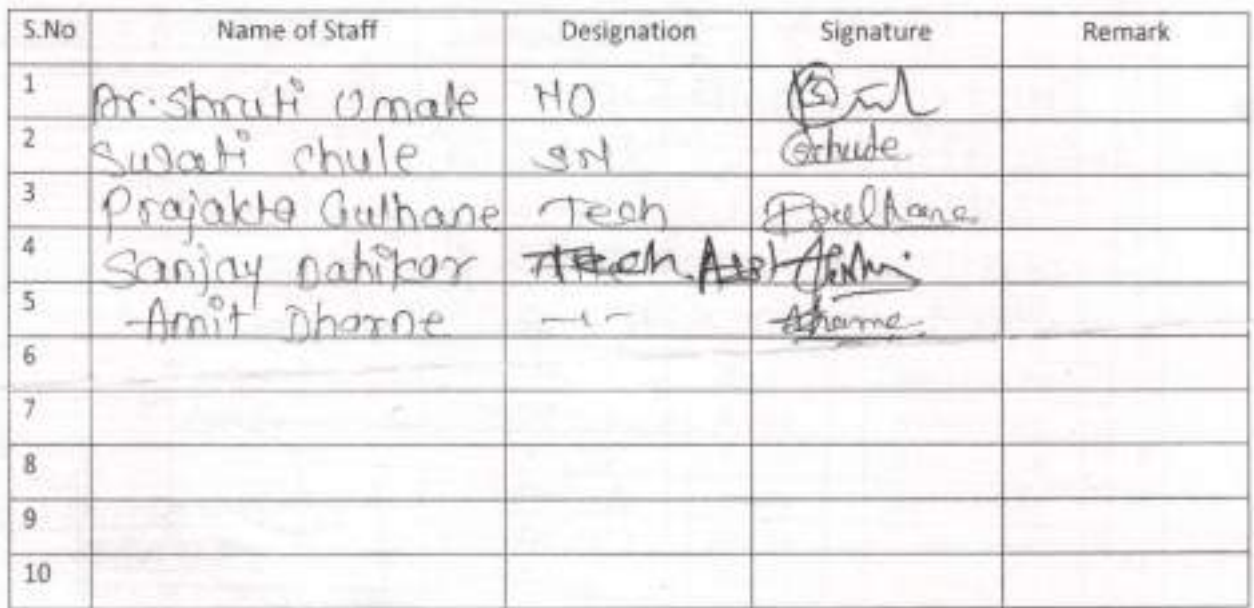 S.No Name of Staff Designation Signature Remark
1 Dr. Shruti Omale MO
2 Swati chule SN Gchule
3 Prajakta Gulhane Tech PGulhane
4 Sanjay Dahikar Tech Asst
5 Amit Dharne -"- Adharne
6
7
8
9
10